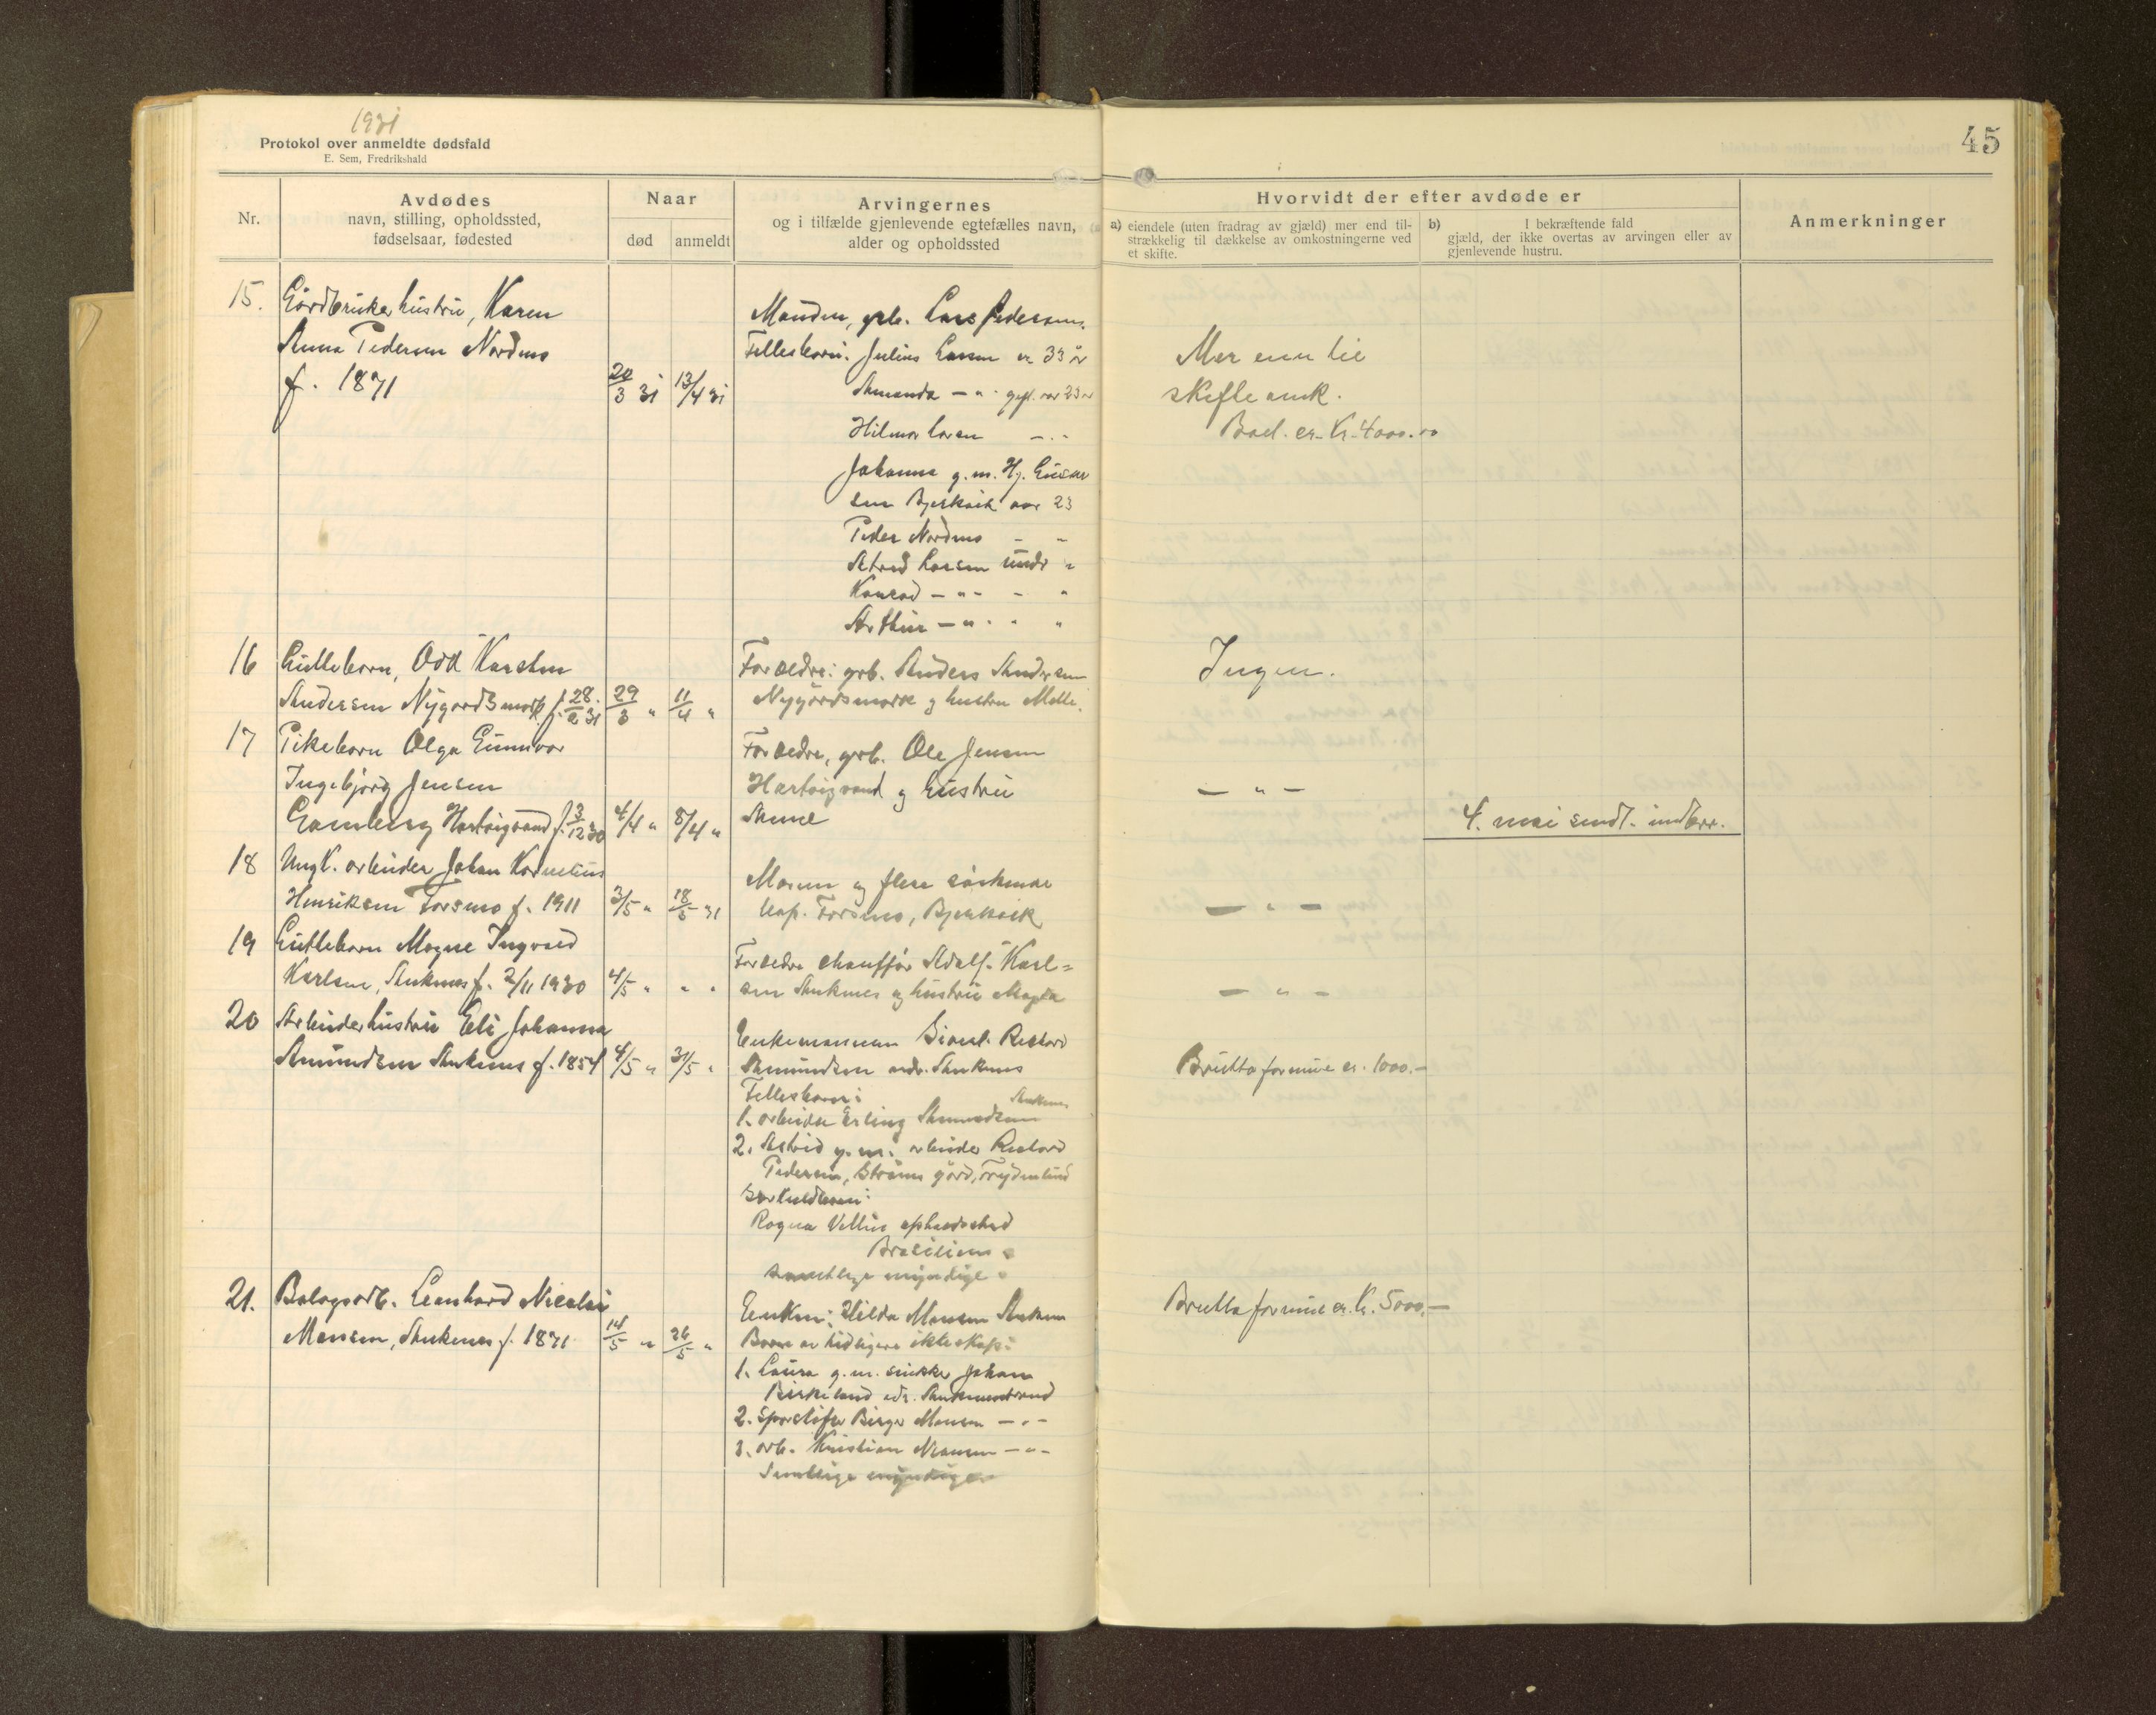 1931
Protokol over anmeldte dødsfald
E. Sem, Fredrikshald
45
Nr.
Avdødes
navn, stilling, opholdssted,
fødselsaar, fødested
Naar
død
anmeldt
Arvingernes
og i tilfælde gjenlevende egtefælles navn,
alder og opholdssted
Hvorvidt der efter avdøde er
a) eiendele (uten fradrag av gjæld) mer end til-
strækkelig til dækkelse av omkostningerne ved
et skifte.
b) I bekræftende fald
gjæld, der ikke overtas av arvingen eller av
gjenlevende hustru.
Anmerkninger
15. Gårdbruker hustru, Karen
Anna Pedersen Nordmo
f. 1871
20/3 31 13/4 31
Manden, grb. Lars Pedersen.
Felles barn. Julius Larsen er 33 år
Amanda — " - gift over 23 år
Hilmar Larsen — " -
Johanna g. m. Hj. Gustav
sen Bjerkvik over 23
Peder Nordmo - "
Astrid Larsen under "
Konrad — " - - "
Arthur — " - " "
Mer enn til
skifte omk.
Boet. er. Kr. 4000.00
16 Guttebarn, Odd Karsten
Andersen Nygårdsmark f. 28/2 31
29/3 " 11/4 "
Foreldre: grb. Anders Andersen
Nygårdsmark og hustru
Ingen.
17 Pikebarn Olga Gunnvor
Ingebjørg Jensen
Hartvigvand f. 3/12 30
4/4 " 8/4 "
Foreldre, grb. Ole Jensen
Hartvigvand og hustru
Anne
— " —
4. mai sendt. indber.
18 Ungk. arbeider Johan Kornelius
Henriksen Forsmo f. 1911
3/5 " 18/5 31
Moren og flere søskende
Forsmo, Bjerkvik
— " —
19 Guttebarn Magne Ingvald
Karlsen, Ankenes f. 2/11 1930
4/5 " " "
Foreldre chauffør Adolf Karl=
sen Ankenes og hustru Magda
— " —
20 Arbeiderhustru Eli Johanna
Amundsen Ankenes f. 1854
4/5 " 31/5 "
Enkemannen Rikard
Amundsen adr. Ankenes
Felles barn:
1. arbeider Erling Amundsen Ankenes
2. Astrid g. m. arbeider Rikard
Pedersen, Strøms gård, Frydenlund
Særkuldbarn:
Ragna opholdssted
Brasilien
Samtlige myndige
Brutto formue er. 1000.-
21. Balagsarb. Leonhard Nicolai
Monsen, Ankenes f. 1871
14/5 " 26/5 "
Enken: Hilda Monsen Ankenes
Barn av tidligere ekteskap:
1. Laura g. m. snekker Johan
Birkeland adr. Ankenesstrand
2. Birger Monsen — " —
3. arb. Kristian Monsen — " —
Samtlige myndige
Brutto formue er. Kr. 5000.—